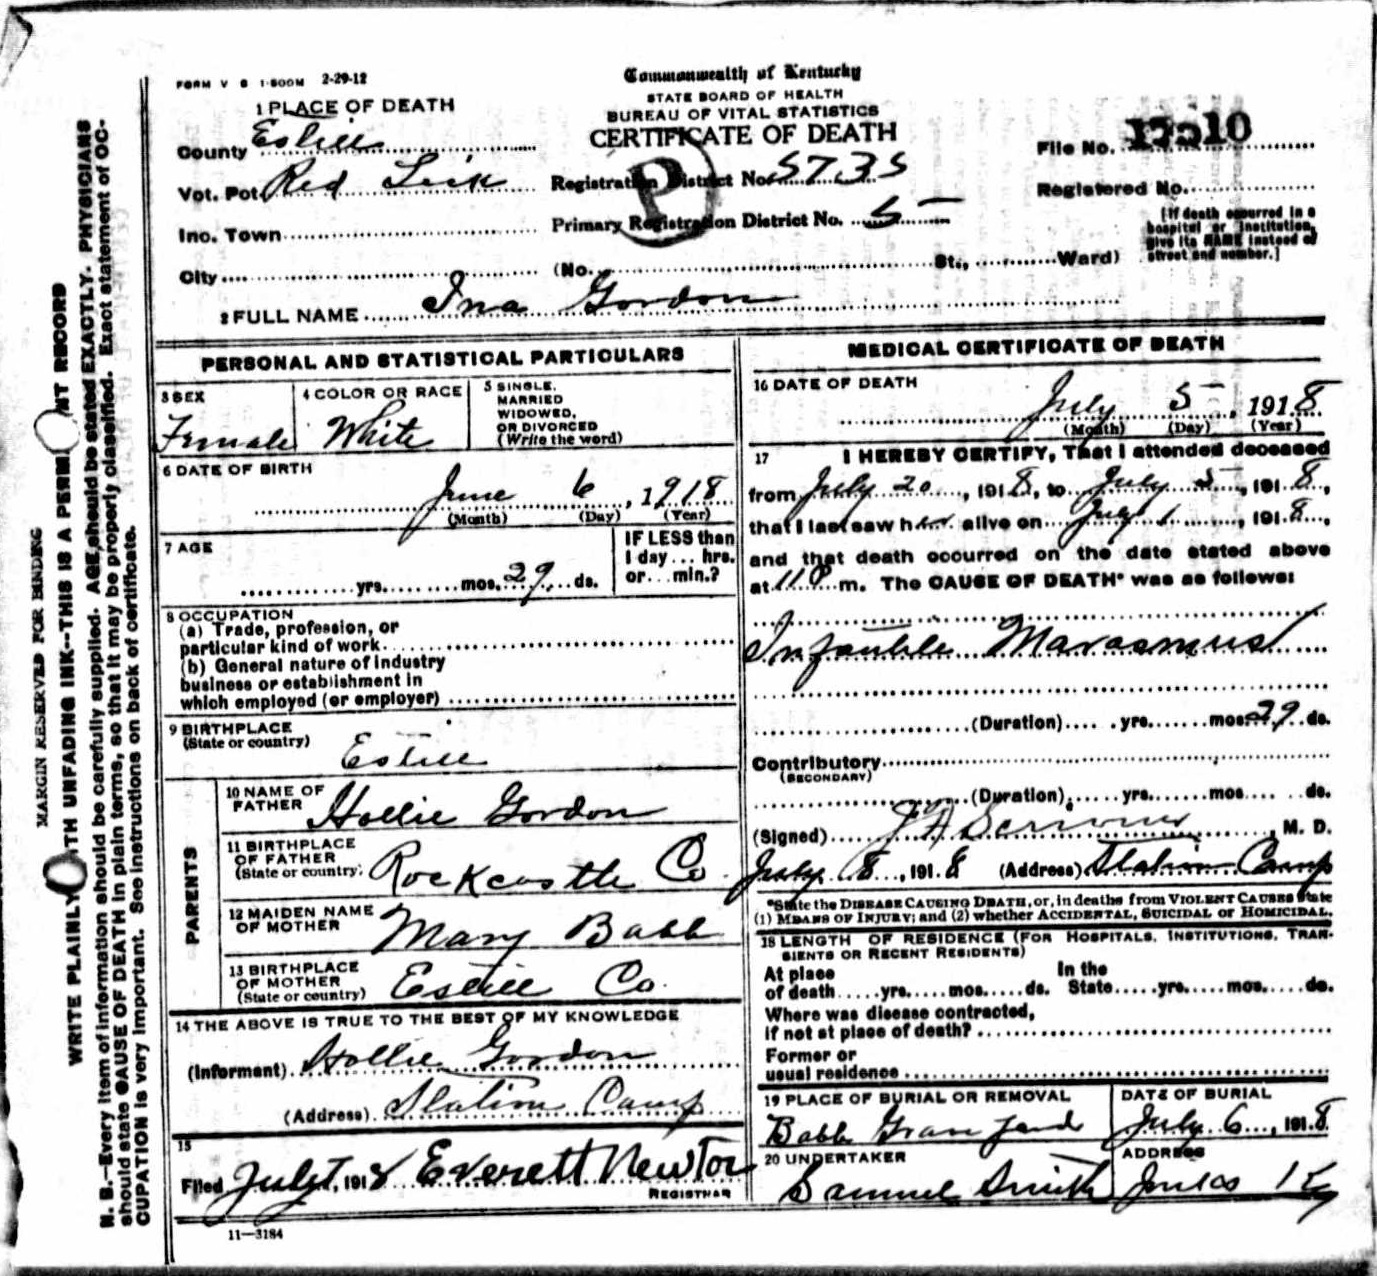 FORM V S 1-500M 2-29-12
Commonwealth of Kentucky
STATE BOARD OF HEALTH
BUREAU OF VITAL STATISTICS
CERTIFICATE OF DEATH
1 PLACE OF DEATH
County Estill
Vot. Pot. Red Lick
Inc. Town
City
Registration District No. 5735
Primary Registration District No. 5
P
(No. St., Ward)
File No. 17510
Registered No.
[If death occurred in a
hospital or institution,
give its NAME instead of
street and number.]
2 FULL NAME Ina Gordon
PERSONAL AND STATISTICAL PARTICULARS
3 SEX
Female
4 COLOR OR RACE
White
5 SINGLE,
MARRIED
WIDOWED,
OR DIVORCED
(Write the word)
6 DATE OF BIRTH
June 6, 1918
(Month) (Day) (Year)
7 AGE
yrs. mos. 29 ds.
IF LESS than
1 day ... hrs.
or ... min.?
8 OCCUPATION
(a) Trade, profession, or
particular kind of work
(b) General nature of industry
business or establishment in
which employed (or employer)
9 BIRTHPLACE
(State or country)
Estill
PARENTS
10 NAME OF
FATHER Hollie Gordon
11 BIRTHPLACE
OF FATHER
(State or country) Rockcastle Co
12 MAIDEN NAME
OF MOTHER Mary Babb
13 BIRTHPLACE
OF MOTHER
(State or country) Estill Co.
14 THE ABOVE IS TRUE TO THE BEST OF MY KNOWLEDGE
(Informant) Hollie Gordon
(Address) Station Camp
15
Filed July 7, 1918 Everett Newton
REGISTRAR
11—3184
MEDICAL CERTIFICATE OF DEATH
16 DATE OF DEATH
July 5, 1918
(Month) (Day) (Year)
17 I HEREBY CERTIFY, That I attended deceased
from July 20, 1918, to July 5, 1918,
that I last saw her alive on July 1, 1918,
and that death occurred on the date stated above
at 11 P m. The CAUSE OF DEATH* was as follows:
Infantile Marasmus
(Duration) yrs. mos. 29 ds.
Contributory
(SECONDARY)
(Duration) yrs. mos. ds.
(Signed) Scrivner, M. D.
July 8, 1918 (Address) Station Camp
*State the DISEASE CAUSING DEATH, or, in deaths from VIOLENT CAUSES state
(1) MEANS OF INJURY; and (2) whether ACCIDENTAL, SUICIDAL or HOMICIDAL.
18 LENGTH OF RESIDENCE (FOR HOSPITALS, INSTITUTIONS, TRAN-
SIENTS OR RECENT RESIDENTS)
At place
of death yrs. mos. ds.
In the
State yrs. mos. ds.
Where was disease contracted,
if not at place of death?
Former or
usual residence
19 PLACE OF BURIAL OR REMOVAL
Babb Grave yard
DATE OF BURIAL
July 6, 1918
20 UNDERTAKER
Samuel Smith
ADDRESS
Jinks Ky
MARGIN RESERVED FOR BINDING
WRITE PLAINLY WITH UNFADING INK--THIS IS A PERMANENT RECORD
N. B.-Every item of information should be carefully supplied. AGE should be stated EXACTLY. PHYSICIANS
should state CAUSE OF DEATH in plain terms, so that it may be properly classified. Exact statement of OC-
CUPATION is very important. See instructions on back of certificate.